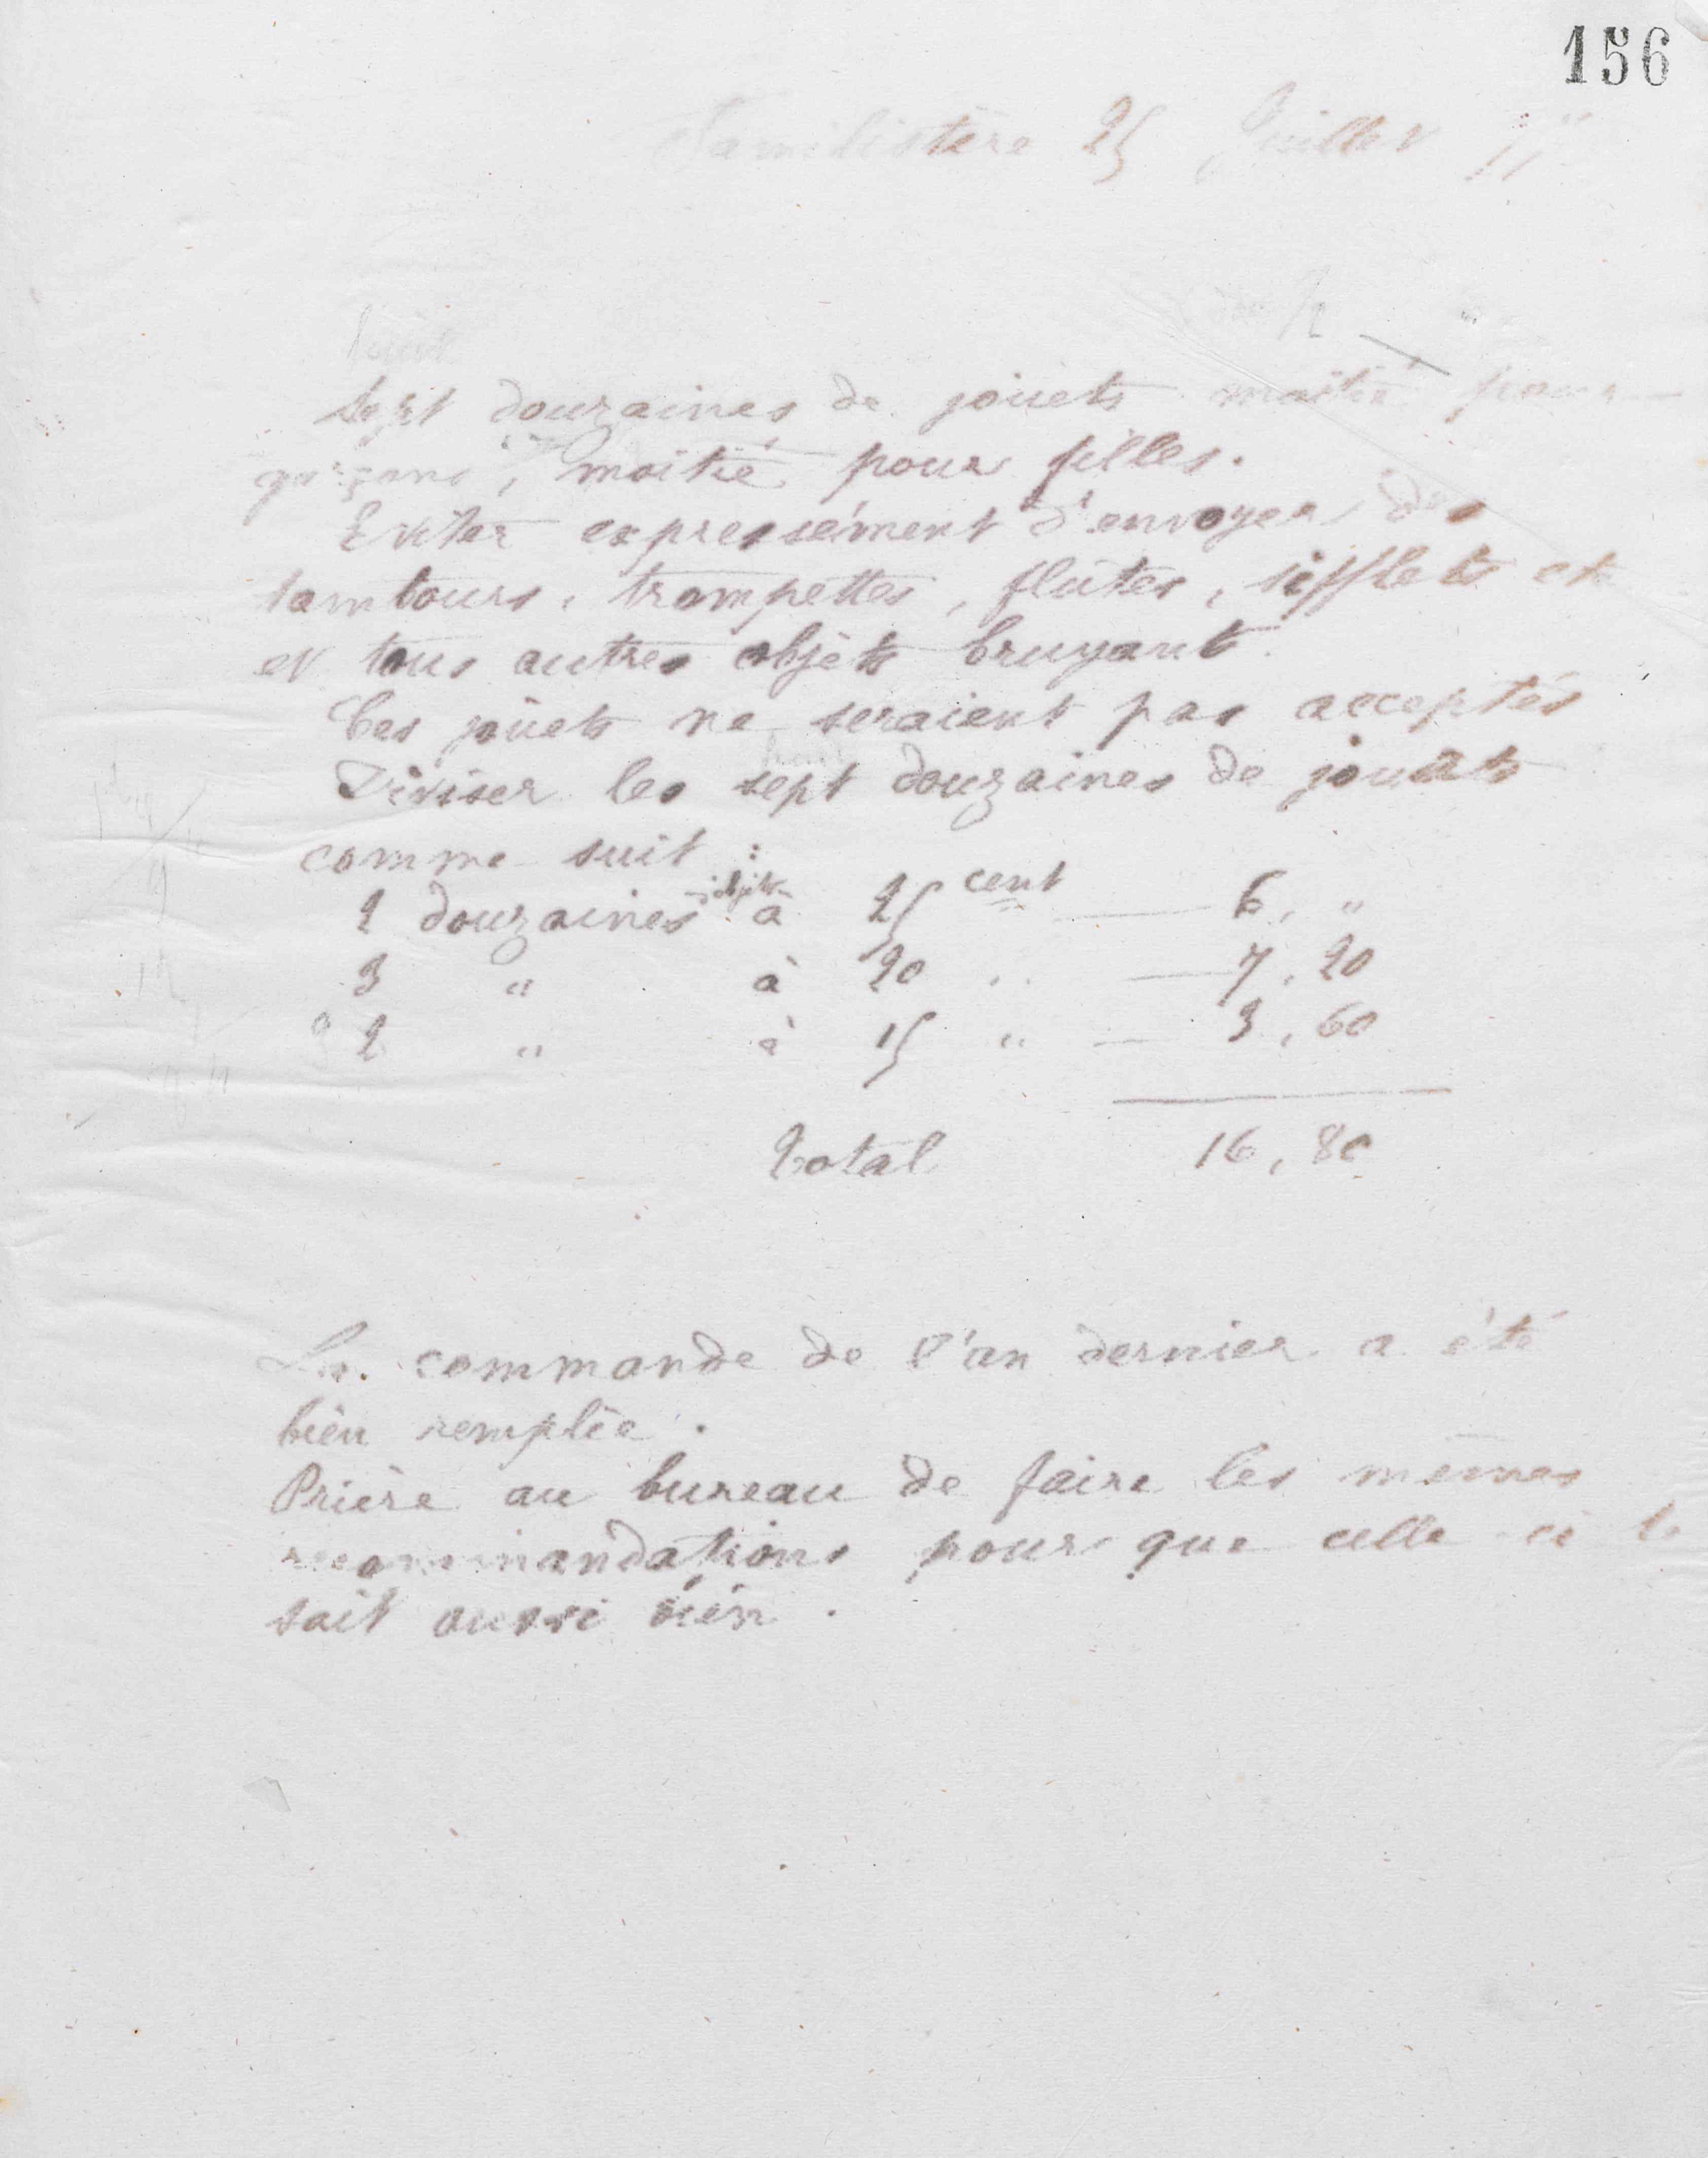 156
Familistère 25 Juillet
huit
Sept douzaines de jouets moitié pour
garçons, moitié pour filles.
Eviter expressément d'envoyer des
tambours, trompettes, flûtes, sifflets et
et tous autres objets bruyant.
Ces jouets ne seraient pas acceptés
huit
Diviser les sept douzaines de jouets
comme suit :
2 douzaines objets à 25 cent — 6, "
3 " à 20 " — 7, 20
3 2 " à 15 " — 3, 60
Total 16, 80
La commande de l'an dernier a été
bien remplie.
Prière au bureau de faire les mêmes
recommandations pour que celle ci le
soit aussi bien.